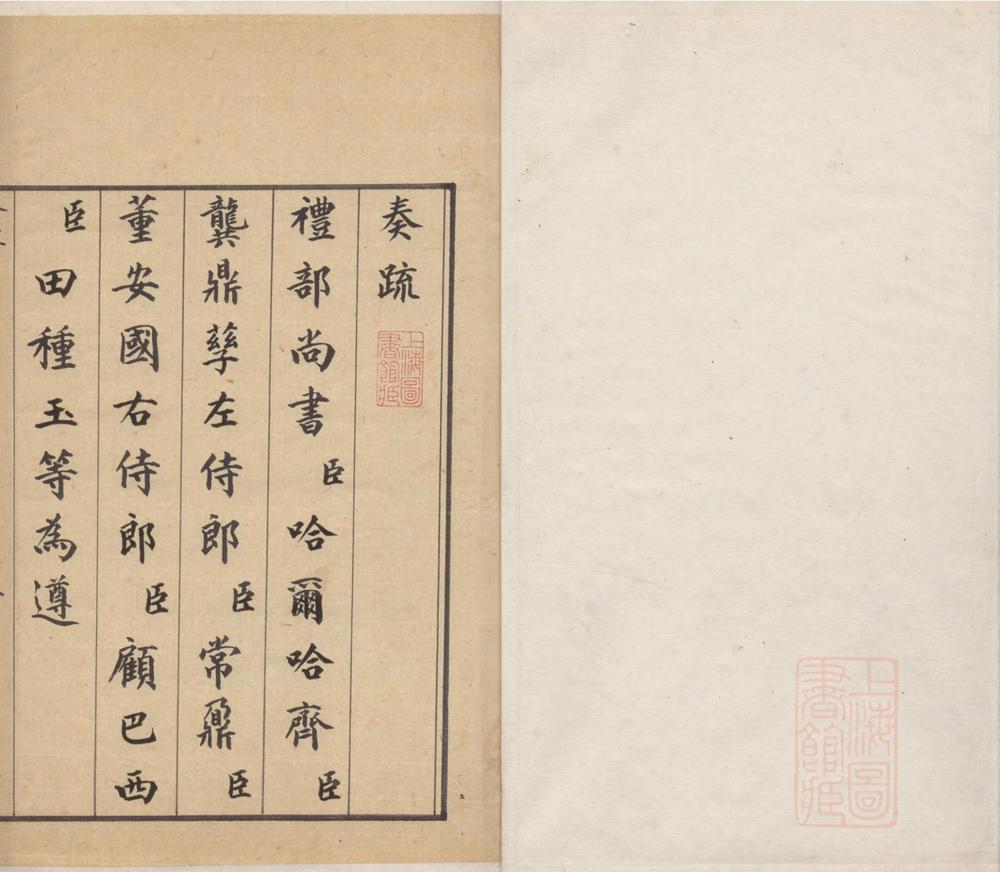 奏疏
上海圖
書館藏
禮部尚書臣哈爾哈齊臣
龔鼎孳左侍郎臣常鼐臣
董安國右侍郎臣顧巴西
臣田種玉等為遵
上海圖
書館藏